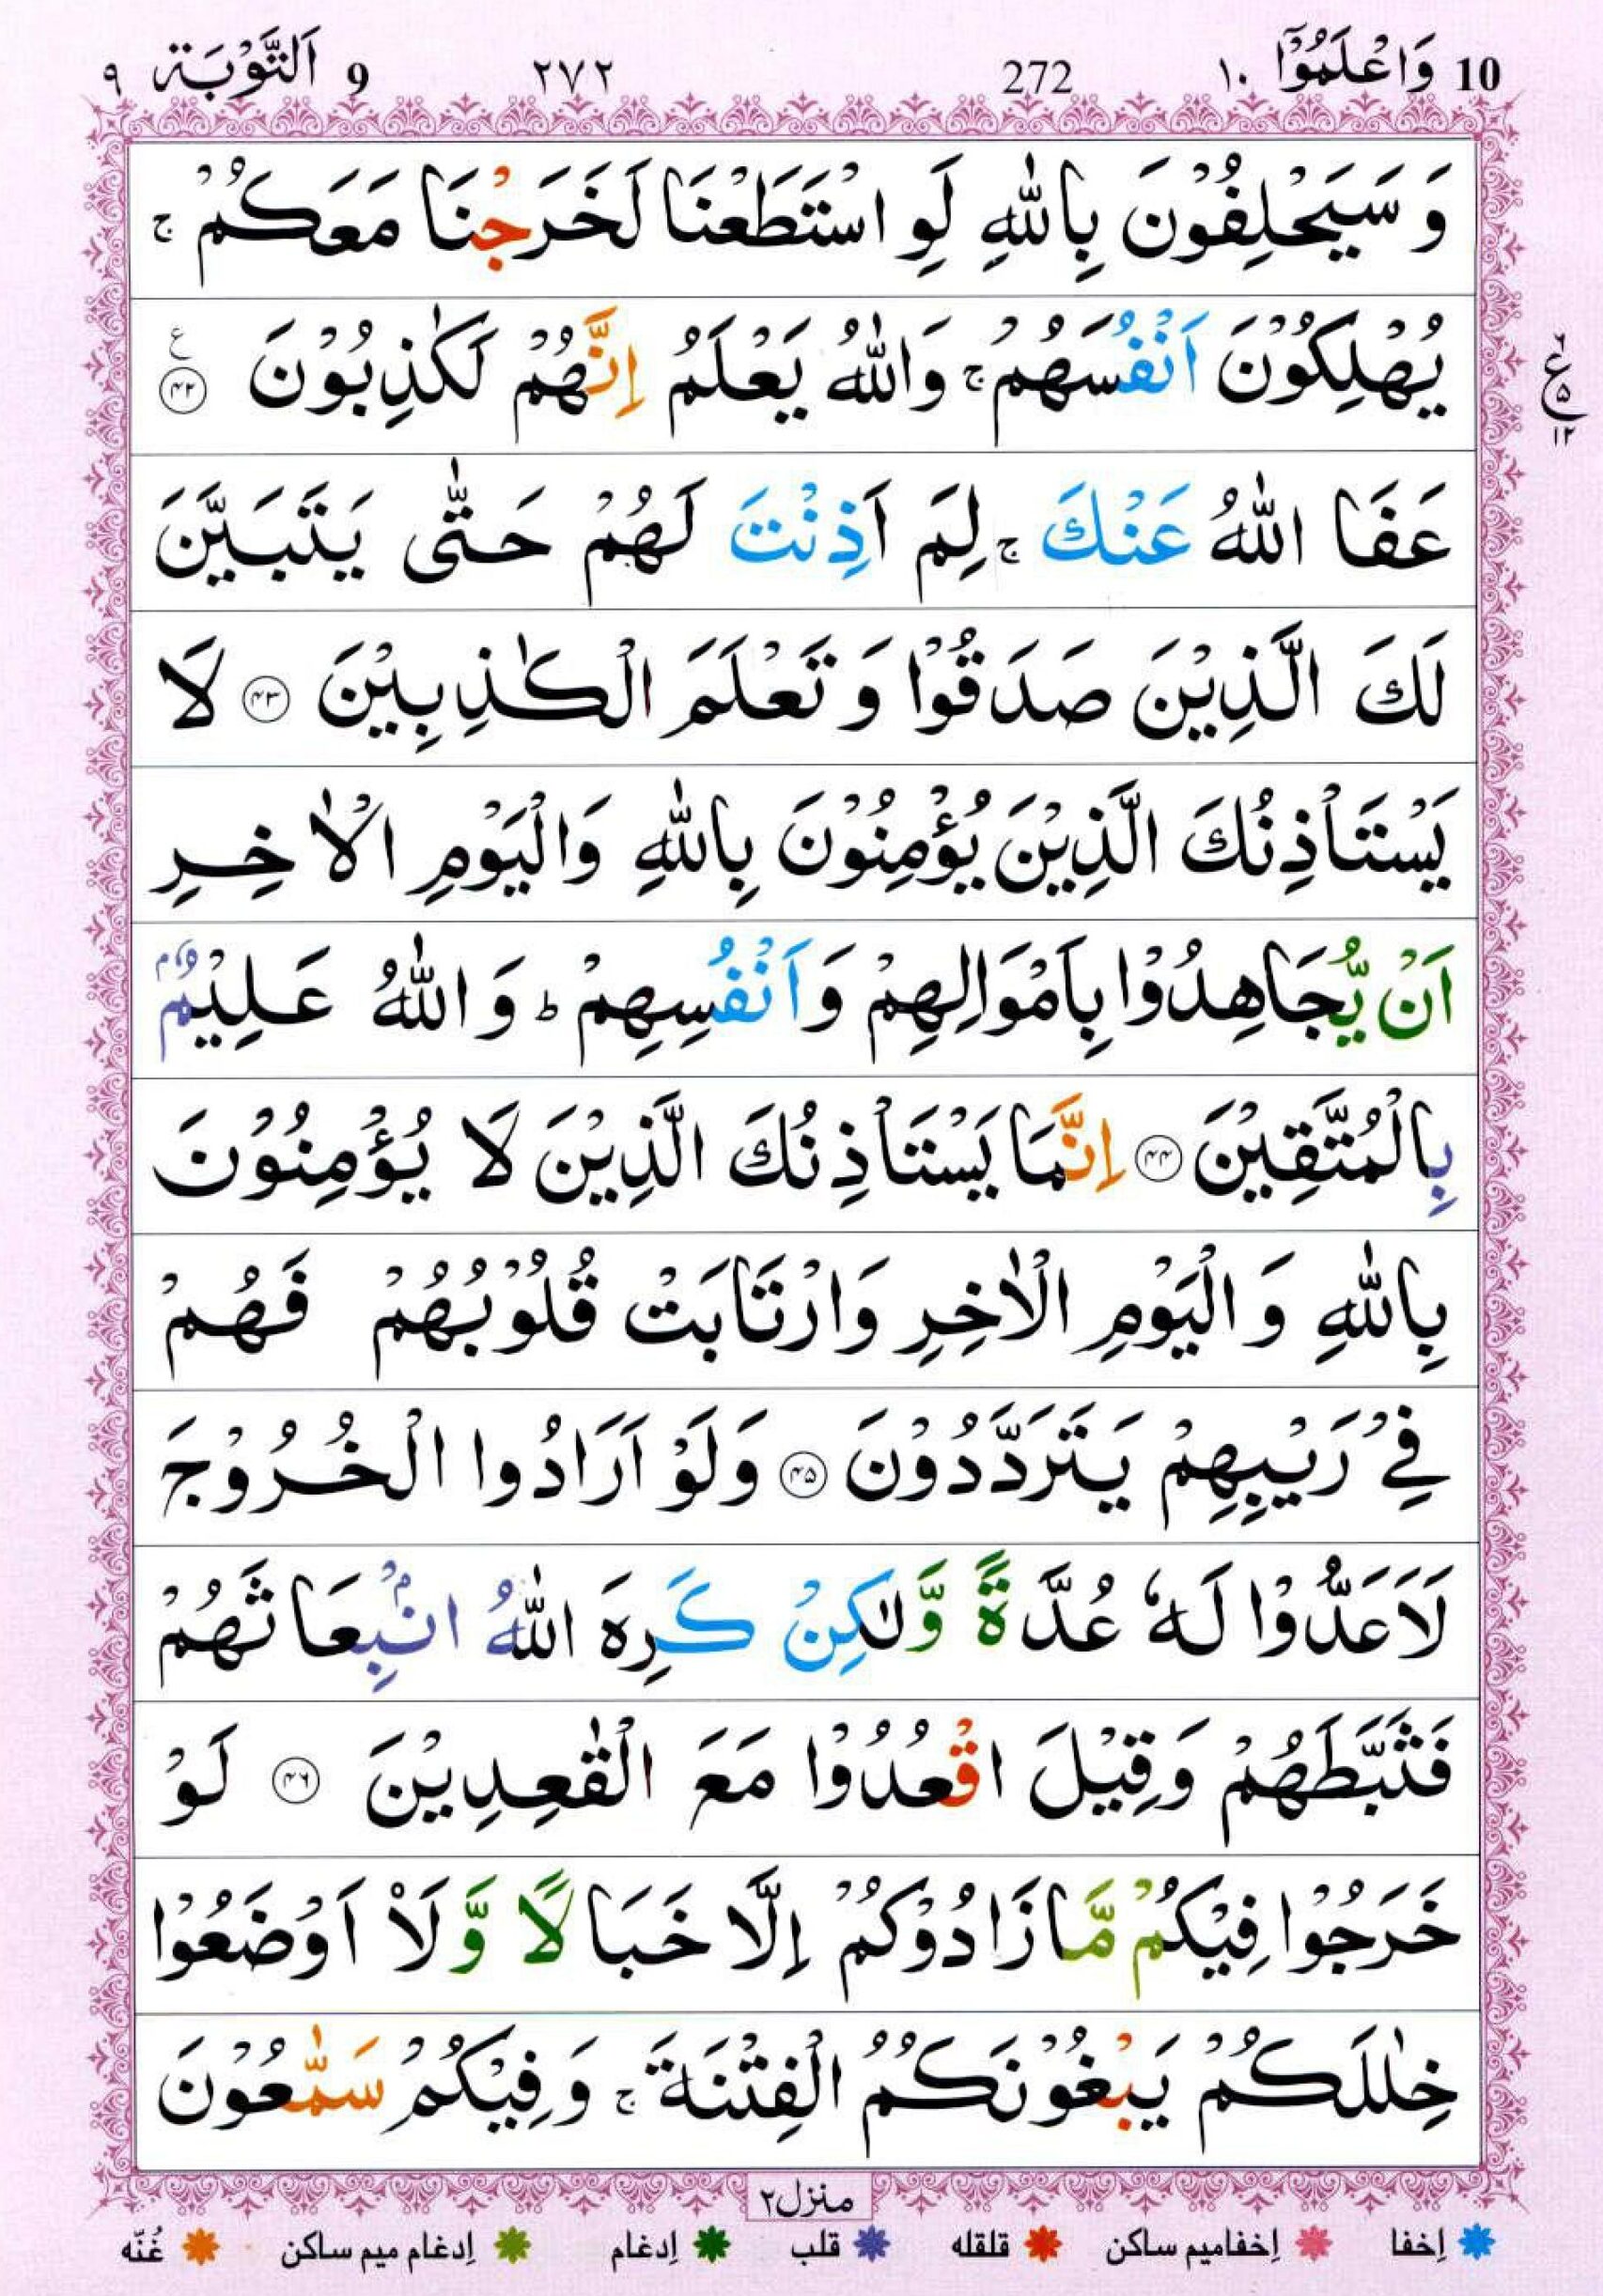 10 وَاعْلَمُوْۤا ١٠ 272 ٢٧٢ 9 اَلتَّوْبَة ٩
وَ سَيَحْلِفُوْنَ بِاللّٰهِ لَوِ اسْتَطَعْنَا لَخَرَجْنَا مَعَكُمْ ۚ
يُهْلِكُوْنَ اَنْفُسَهُمْ ۚ وَاللّٰهُ يَعْلَمُ اِنَّهُمْ لَكٰذِبُوْنَ ع ﴿۴۲﴾
٦ ع ۵ ١٢
عَفَا اللّٰهُ عَنْكَ ۚ لِمَ اَذِنْتَ لَهُمْ حَتّٰى يَتَبَيَّنَ
لَكَ الَّذِيْنَ صَدَقُوْا وَ تَعْلَمَ الْكٰذِبِيْنَ ﴿۴۳﴾ لَا
يَسْتَاْذِنُكَ الَّذِيْنَ يُؤْمِنُوْنَ بِاللّٰهِ وَالْيَوْمِ الْاٰخِرِ
اَنْ يُّجَاهِدُوْا بِاَمْوَالِهِمْ وَاَنْفُسِهِمْ ؕ وَ اللّٰهُ عَلِيْمٌۢ
بِالْمُتَّقِيْنَ ﴿۴۴﴾ اِنَّمَا يَسْتَاْذِنُكَ الَّذِيْنَ لَا يُؤْمِنُوْنَ
بِاللّٰهِ وَ الْيَوْمِ الْاٰخِرِ وَارْتَابَتْ قُلُوْبُهُمْ فَهُمْ
فِيْ رَيْبِهِمْ يَتَرَدَّدُوْنَ ﴿۴۵﴾ وَلَوْ اَرَادُوا الْخُرُوْجَ
لَاَعَدُّوْا لَهٗ عُدَّةً وَّلٰكِنْ كَرِهَ اللّٰهُ انْۢبِعَاثَهُمْ
فَثَبَّطَهُمْ وَقِيْلَ اقْعُدُوْا مَعَ الْقٰعِدِيْنَ ﴿۴۶﴾ لَوْ
خَرَجُوْا فِيْكُمْ مَّا زَادُوْكُمْ اِلَّا خَبَالًا وَّ لَاْ اَوْضَعُوْا
خِلٰلَكُمْ يَبْغُوْنَكُمُ الْفِتْنَةَ ۚ وَ فِيْكُمْ سَمّٰعُوْنَ
منزل٢
اِخفا اِخفامیم ساکن قلقله قلب اِدغام اِدغام میم ساکن غُنّه